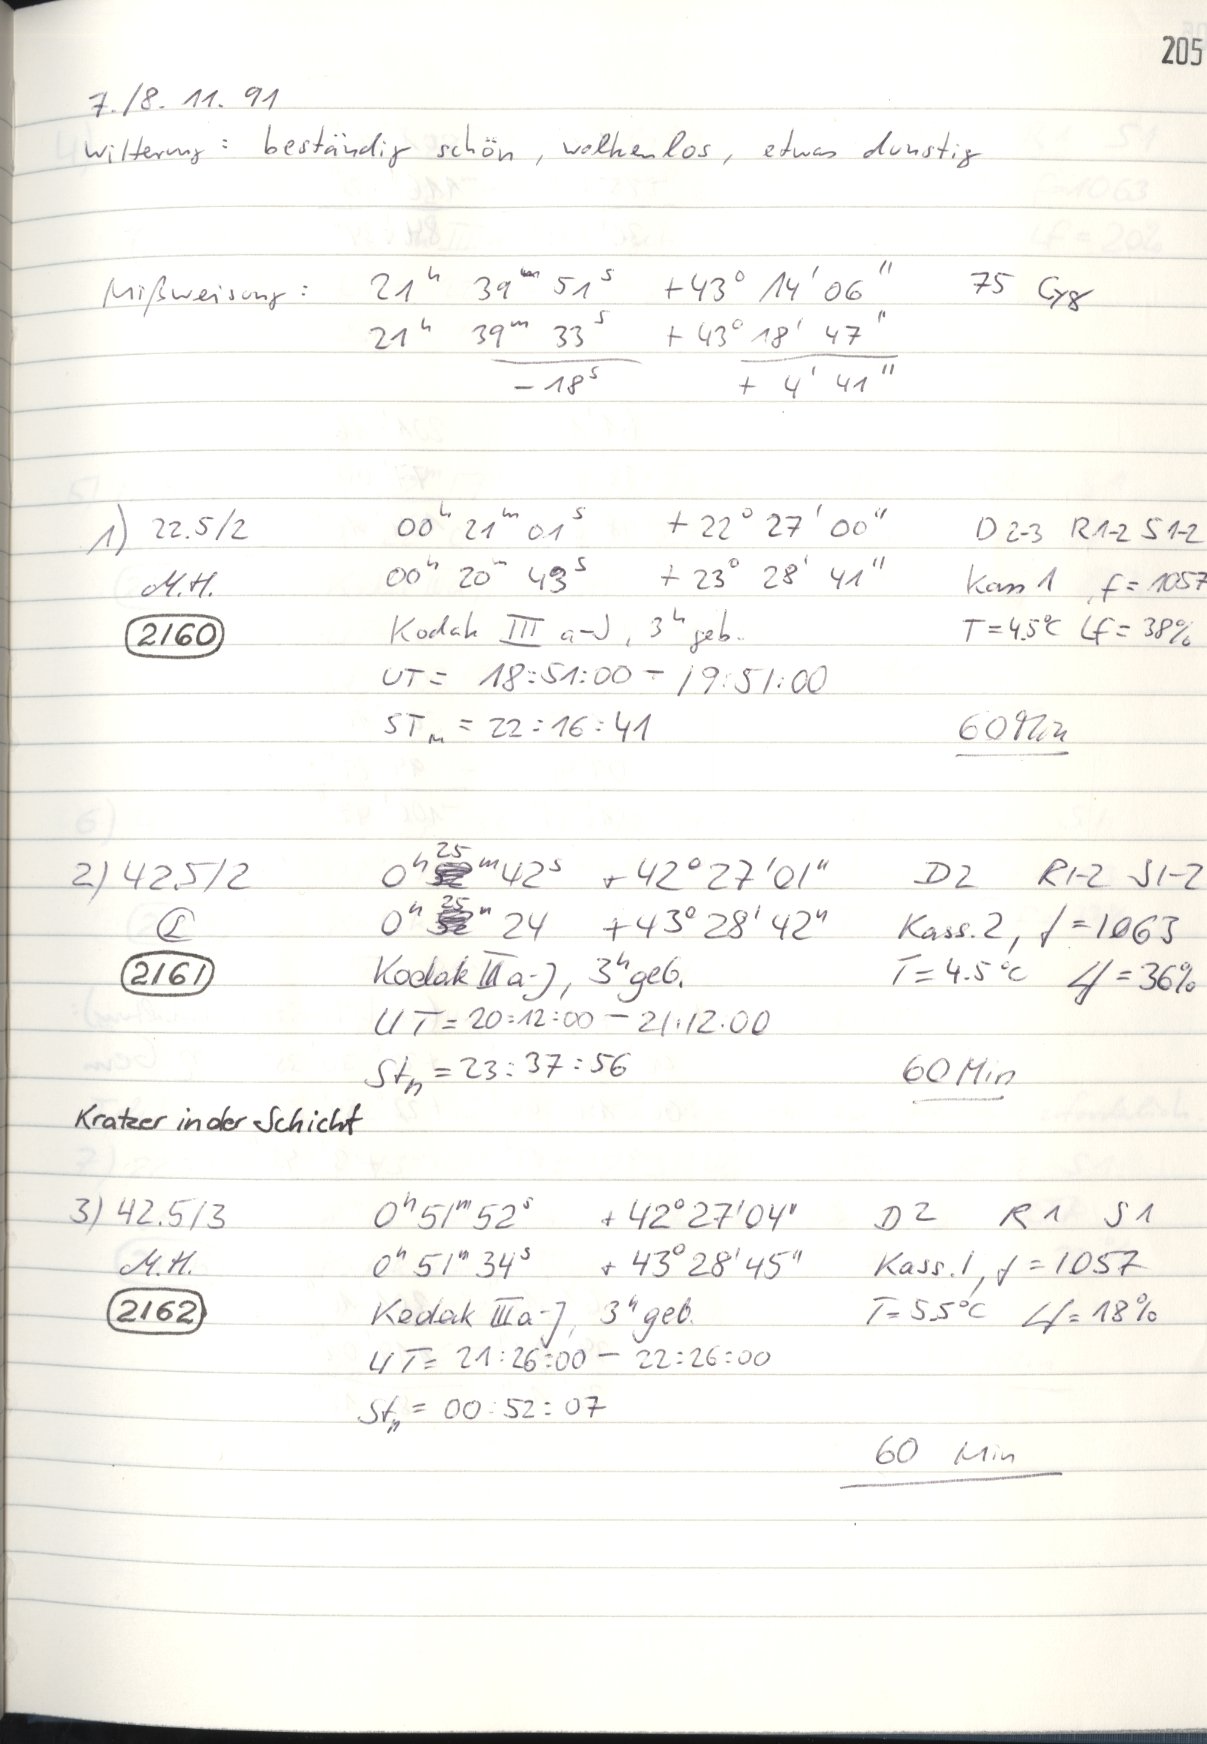 205
7./8. 11. 91
Witterung: beständig schön, wolkenlos, etwas dunstig
Mißweisung: 21h 39m 51s +43° 14' 06" 75 Cyg
21h 39m 33s +43° 18' 47"
-18s + 4' 41"
1) 22.5/2 00h 21m 01s +22° 27' 00" D2-3 R1-2 S1-2
M.H. 00h 20m 43s +23° 28' 41" Kass 1, f=1057
2160 Kodak III a-J, 3h geb. T=4.5°C Lf=38%
UT= 18:51:00 - 19:51:00
STm = 22:16:41 60 Min
2) 42.5/2 0h 25m 42s +42° 27' 01" D2 R1-2 S1-2
0h 25m 24 +43° 28' 42" Kass. 2, f=1063
2161 Kodak III a-J, 3h geb. T=4.5°C Lf=36%
UT=20:12:00 - 21:12.00
Stm = 23:37:56 60 Min
Kratzer in der Schicht
3) 42.5/3 0h 51m 52s +42° 27' 04" D2 R1 S1
M.H. 0h 51m 34s +43° 28' 45" Kass. 1, f=1057
2162 Kodak III a-J, 3h geb. T=5.5°C Lf=18%
UT= 21:26:00 - 22:26:00
Stm = 00:52:07
60 Min